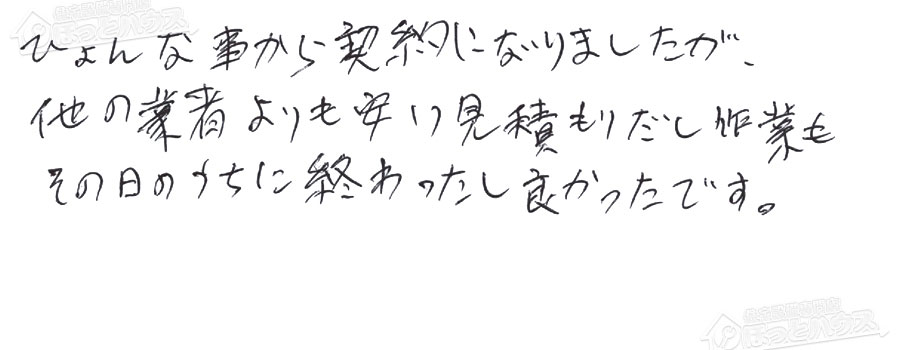 ひょんな事から契約になりましたが、
他の業者よりも安い見積もりだし作業も
その日のうちに終わったし良かったです。
ほっとハウス
ほっとハウス